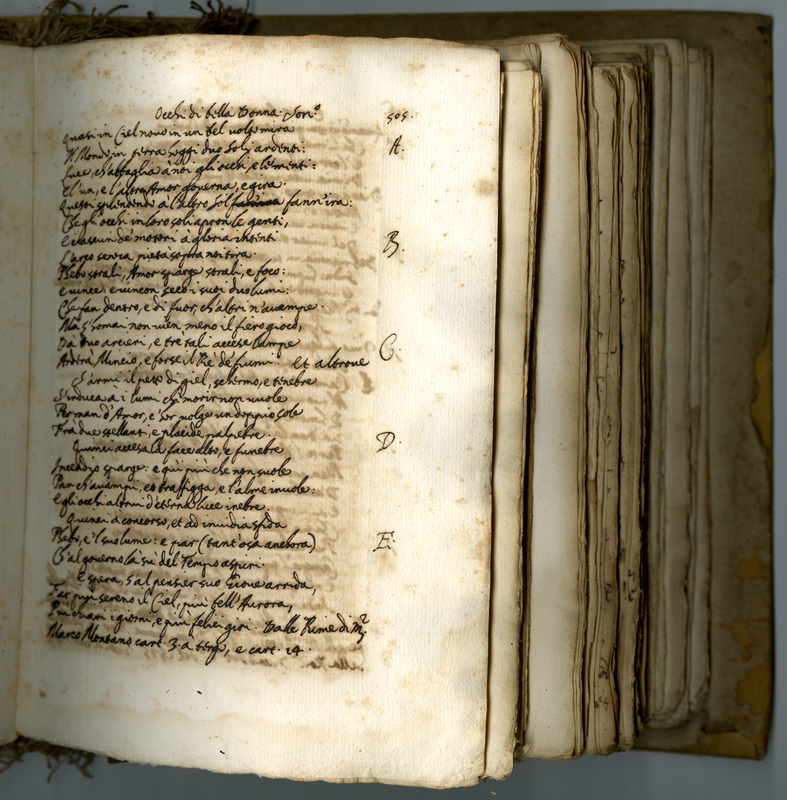 Occhi di bella Donna. Son.º 505.
Quasi in Ciel novo in un bel volto mira
Il Mondo in terra hoggi duo Soli ardenti: A.
Luce, ch'abbaglia à noi gli occhi, e le menti:
E l'un, e l'altro Amor governa, e gira.
Questi splendendo a l'altro Sol fann'ira:
Che gli occhi in loro soli apron le genti,
E ciascun de' motori à gloria intenti B.
L'arco senza pietà sopra noi tira.
Febo strali, Amor sparge strali, e foco:
e vince: e vincon seco i suoi duo lumi:
Che fan dentro, e di fuor, ch'altri n'avampe.
Ma s'homai non vien meno il fiero gioco,
Da duo arcieri, e tre tali accese lampe
Ardirà Mincio, e forse il Re de' fiumi. et altrove C.
S'armi il petto di giel, schermo, e tenebre
S'induca a i lumi ch'morir non vuole
Per man d'Amor, c'hor volge un doppio sole
Fra due stellanti, e placide palpebre.
Quinci accesa la face alto, e funebre D.
Incendio sparge: e qui più che non suole
Par ch'avampi, et trafigga, e l'alme invole:
E gli occhi altrui d'eterna luce inebre.
Quinci a concorso, et ad invidia sfida
Febo, e'l suo lume: e par (tant'osa anchora) E.
Ch'al governo la su del Tempo aspiri.
E spera, s'al pensier suo Giove arrida,
Far più sereno il Ciel, più bell'Aurora,
Più chiari i giorni, e più felici giri. Dalle Rime di M.
Marco Montano cart. 3. a tergo, e cart. 14.